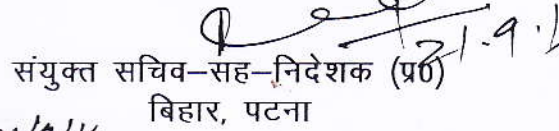 21.9.1
संयुक्त सचिव–सह–निदेशक (प्र0)
बिहार, पटना